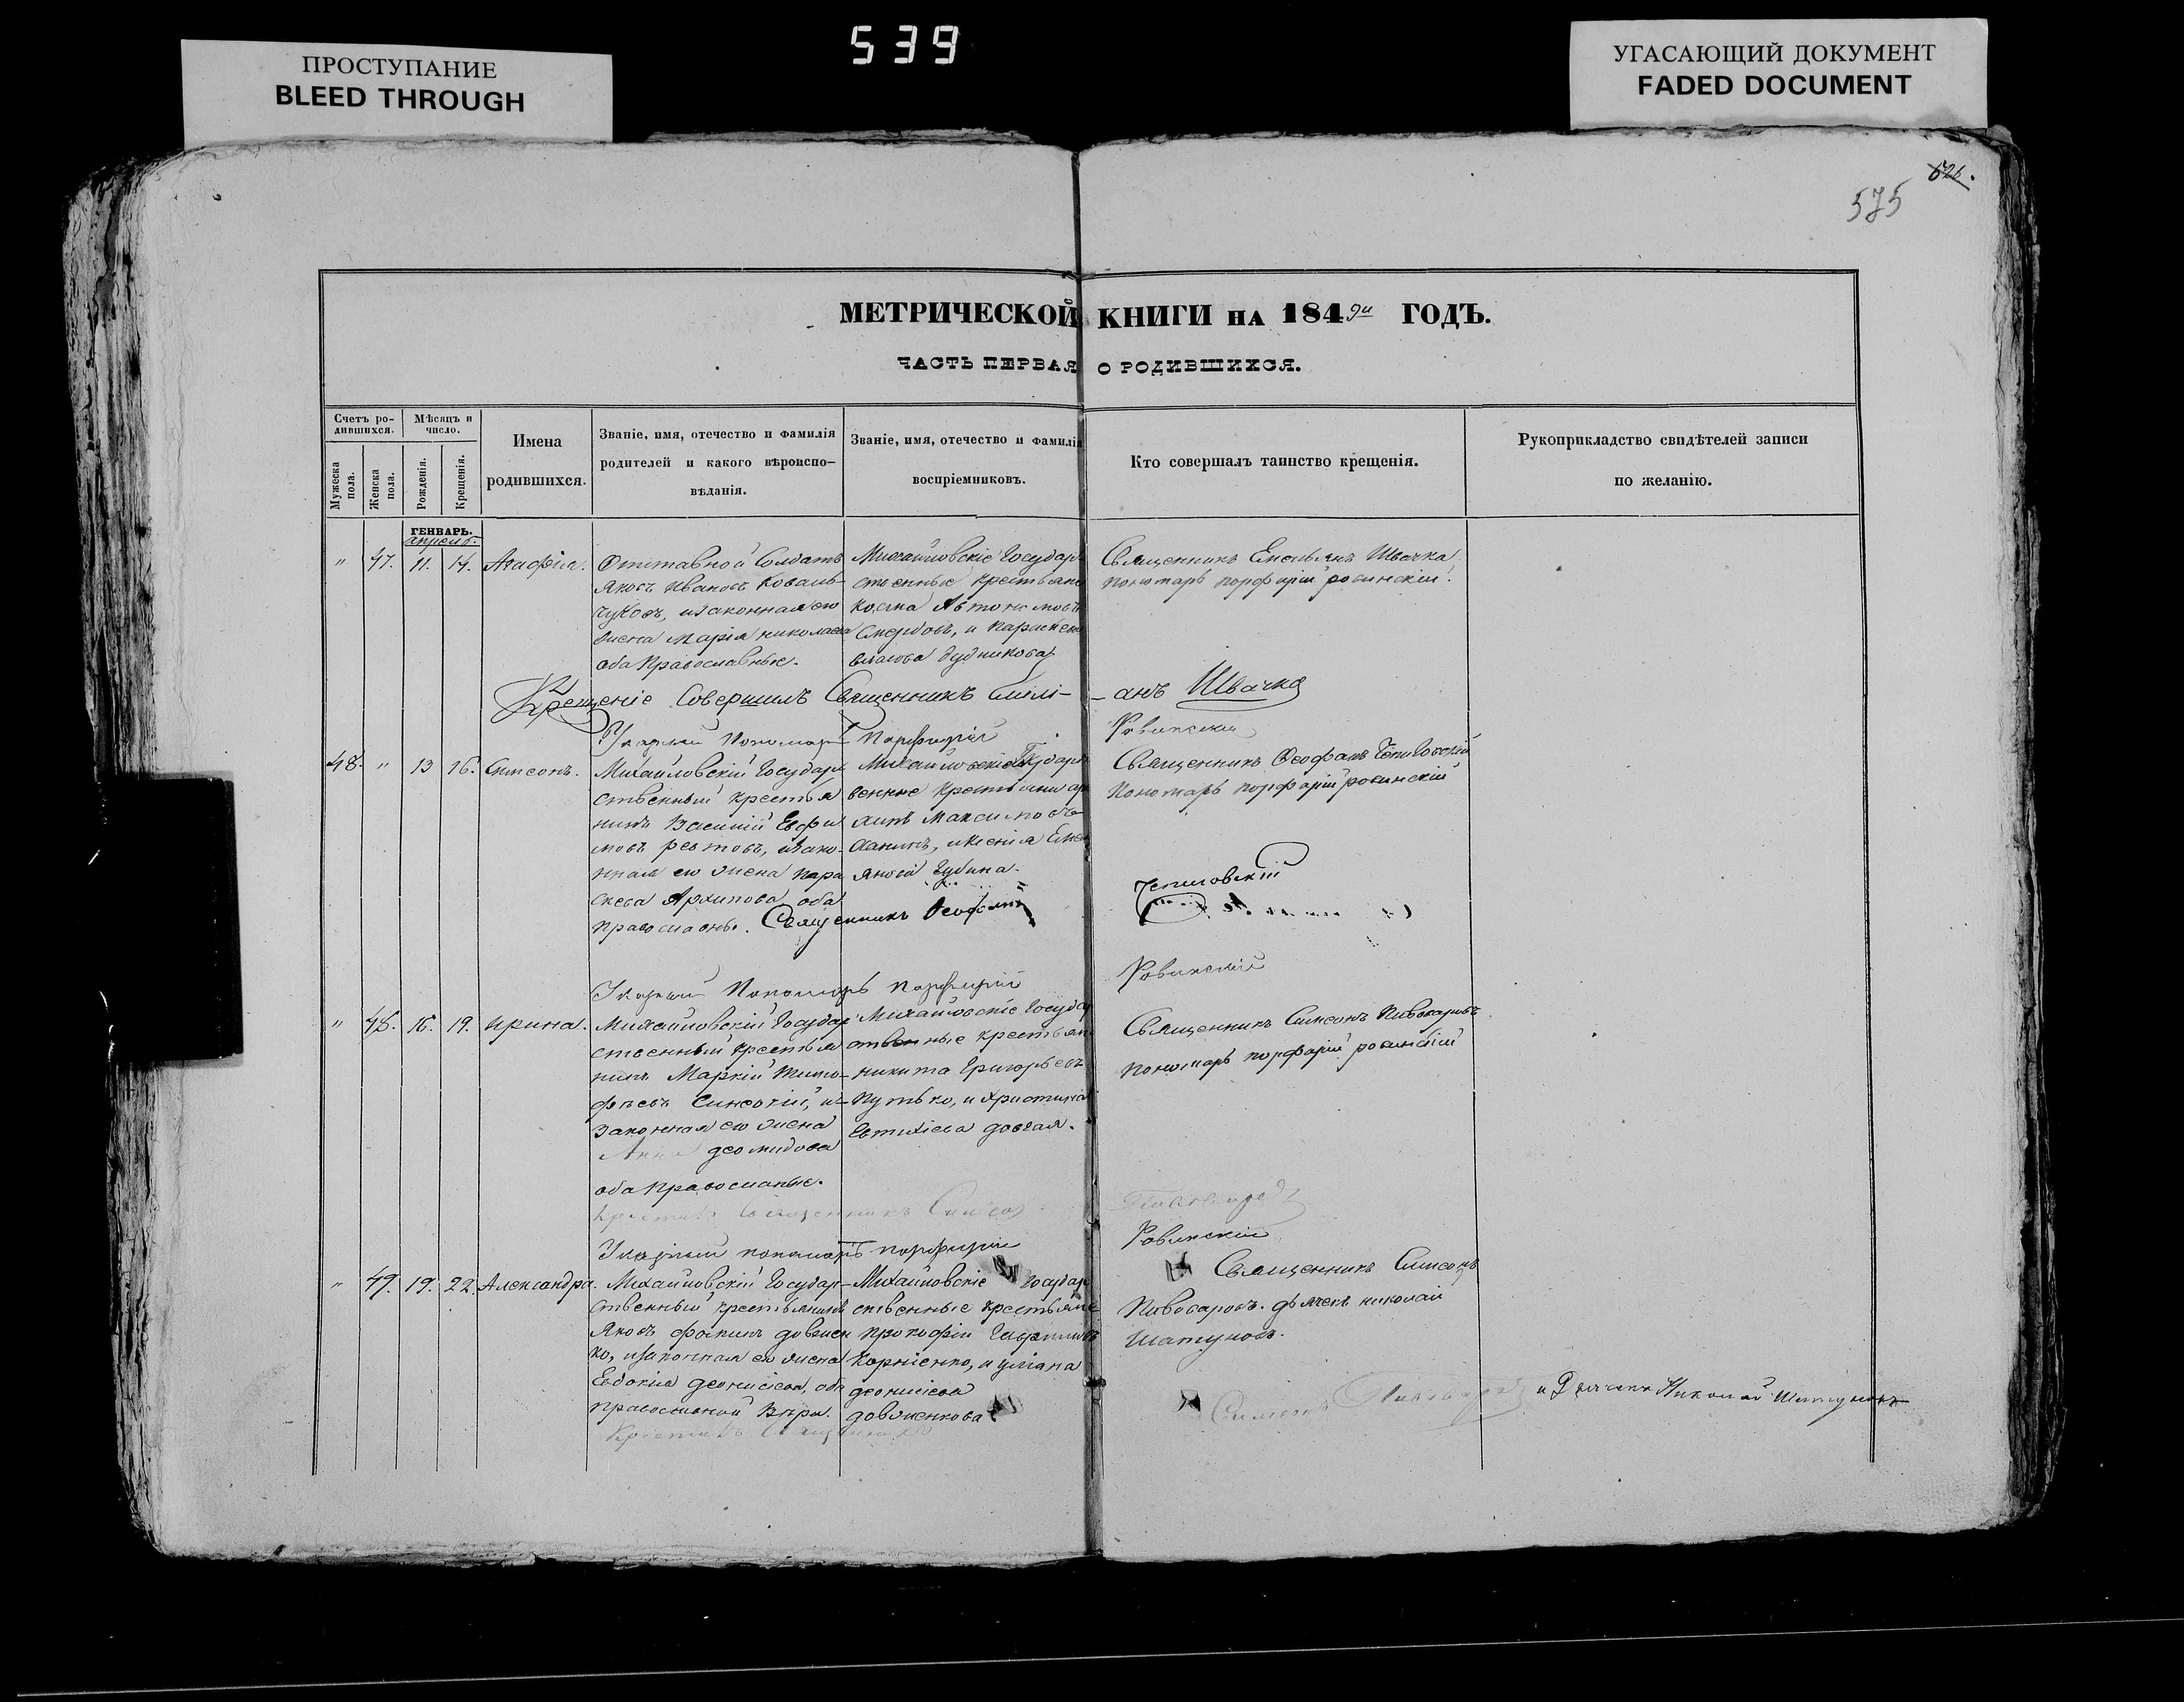 539
ПРОСТУПАНИЕ
BLEED THROUGH
УГАСАЮЩИЙ ДОКУМЕНТ
FADED DOCUMENT
526.
575
МЕТРИЧЕСКОЙ КНИГИ НА 1849й ГОДЪ.
ЧАСТЬ ПЕРВАЯ О РОДИВШИХСЯ.
Счетъ ро-
дившихся.
Мужеска пола.
Женска пола.
Мѣсяцъ и
число.
Рожденія.
Крещенія.
Имена
родившихся.
Званіе, имя, отечество и фамилія
родителей и какого вѣроиспо-
вѣданія.
Званіе, имя, отечество и фамилія
воспріемниковъ.
Кто совершалъ таинство крещенія.
Рукоприкладство свидѣтелей записи
по желанію.
ГЕНВАРЬ.
апрель.
" 47. 11. 14. Агафіа.
Отставной Солдатъ
Яковъ Ивановъ Коваль-
чуковъ, изаконная его
жена Марія николаева
оба Православные.
Михайловскіе Государ-
ственные крестьяне
косма Автономовъ
Смердовъ, и Параскева
власова дудникова
Священникъ Емельянъ Швачка
пономарь порфирій ровинскій.
Крещеніе Совершилъ Священникъ Емелі-
-анъ Швачка
Указный Пономарь Порфирій
Ровинскій
48. " 13 16. Симеонъ.
Михайловскій Государ
ственный крестья
нинъ Василій Евфи
мовъ ревтовъ, изако-
нная его жена пара
скева Архипова оба
православны.
Михайловскіе Государст
венные Крестьяни
Максимовъ
Ханинъ, иксенія
Губина.
Священникъ Феофанъ Чепиговскій
Пономарь порфирій ровинскій
Священникъ Феофанъ
Чепиговскій
Указный Пономарь Порфирій
Ровинскій
" 48. 16. 19. ирина.
Михайловскій Государ
ственный крестья
нинъ Маркій Тимо-
фѣевъ Синеокій, и
законная его жена
Анна деомидова
оба православные.
Михайловскіе Государ
ственные крестьяне
никита Григорьевъ
Путько, и Христина
Евтихіева довгая.
Священникъ Симеонъ Пивоваровъ
пономарь порфирій ровинскій
Крестилъ Священникъ Симеон
Пивоваров
Указный пономарь порфирій
Ровинскій
" 49. 19. 22. Александра.
Михайловскій Государ-
ственный крестьянинъ
Яковъ фокинъ довжен
ко, изаконная его жена
Евдокіа деонисіева, оба
православной Вѣры.
Михайловскіе Государ
ственные крестьяне
прокофій
Корніенко, и уліана
деонисіева
довженкова
Священникъ Симеонъ
Пивоваровъ. дьячекъ николай
Шатуновъ.
Крестилъ Священникъ
Симеонъ Пивоваров и Дьячекъ Николай Шатуновъ